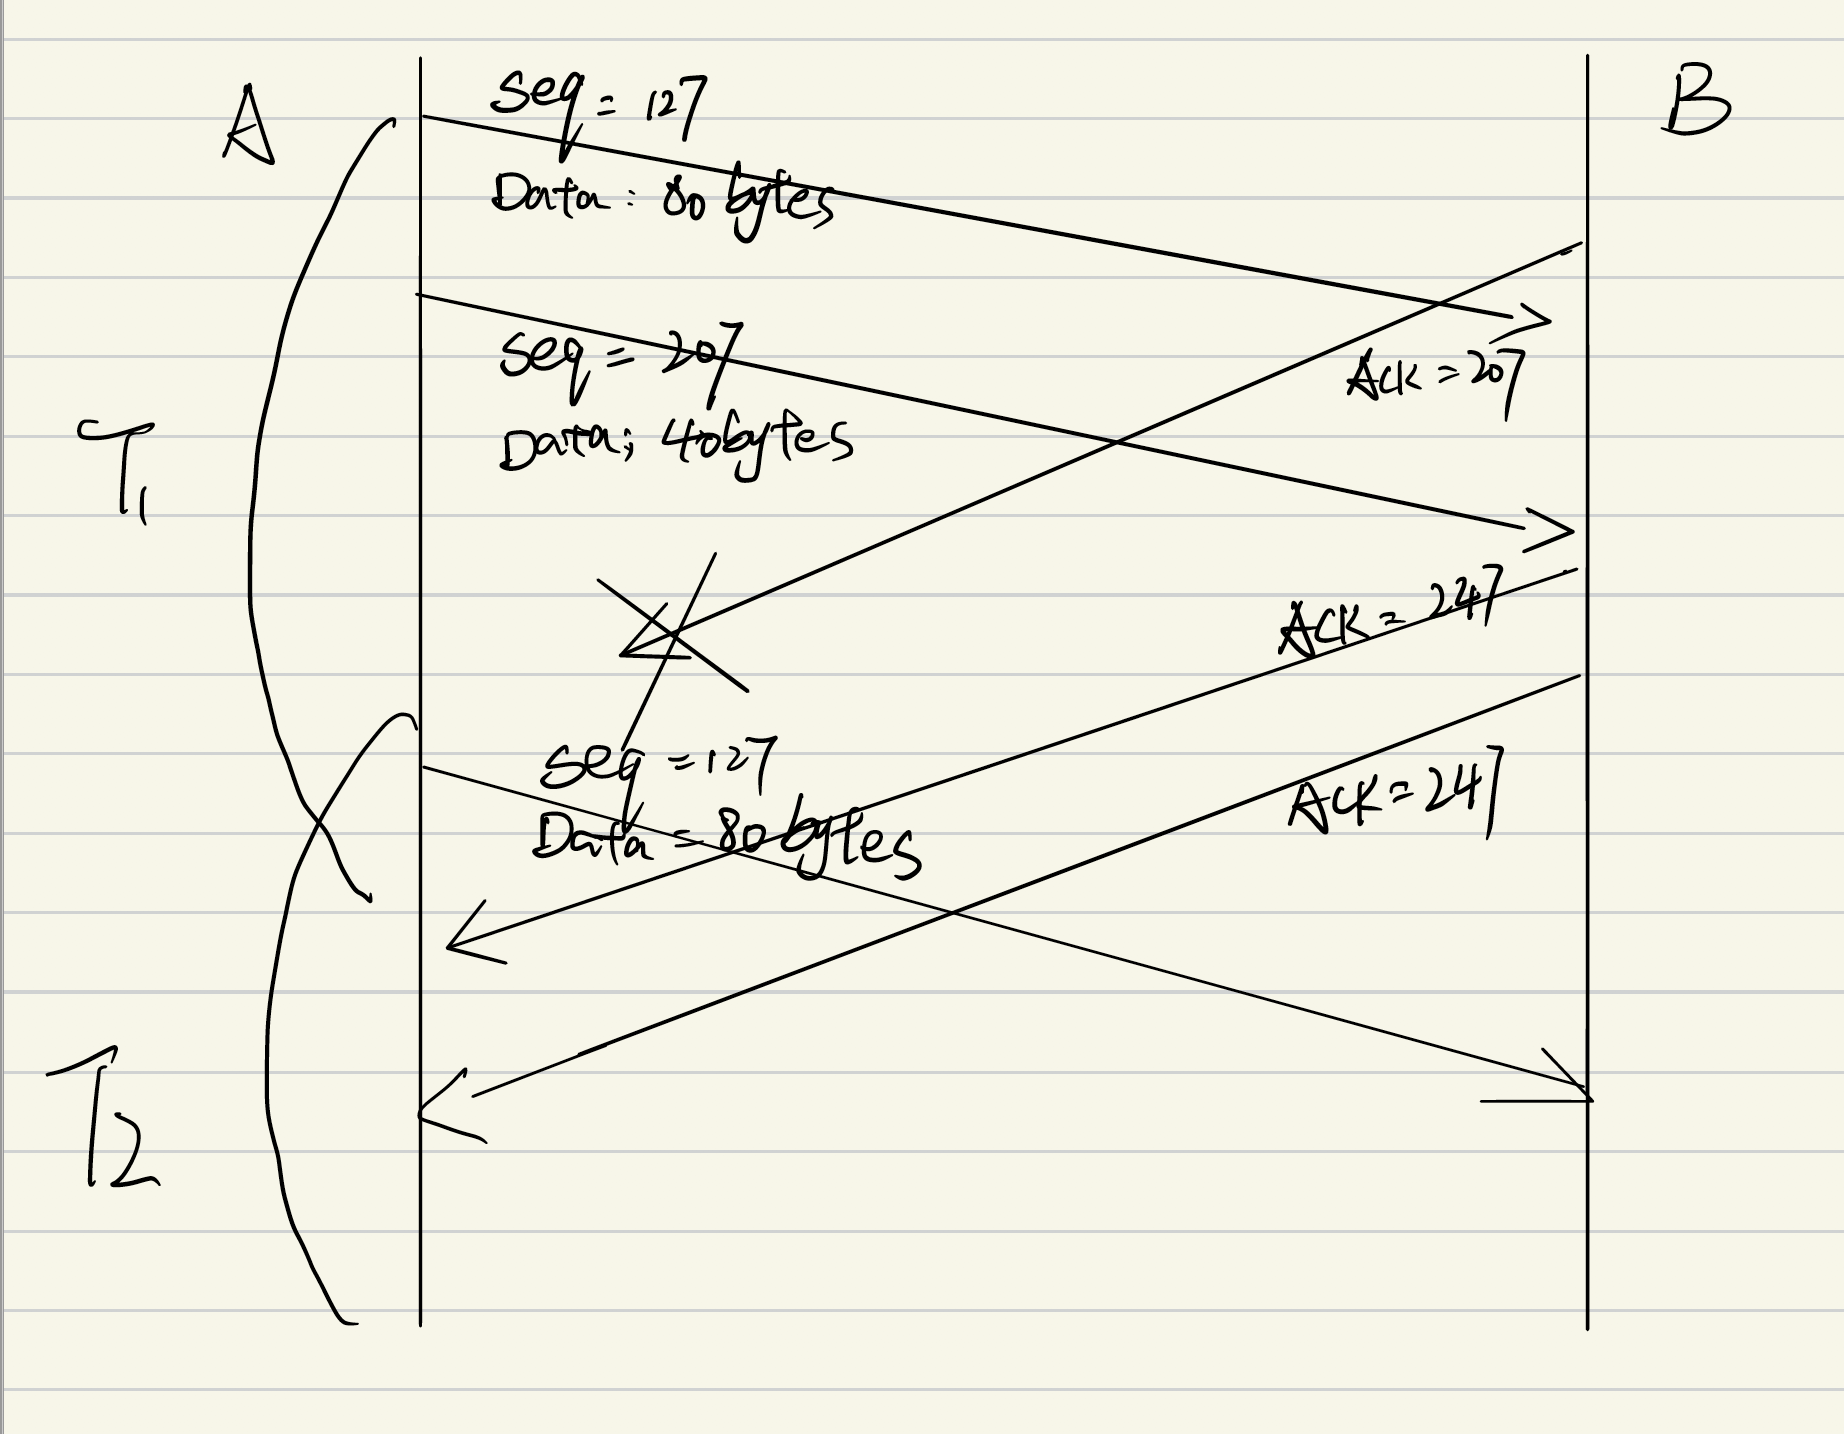 A
B
Seq = 127
Data: 80 bytes
Ack = 207
Seq = 207
Data; 40bytes
T1
Ack = 247
Seq = 127
Data = 80 bytes
Ack = 247
T2